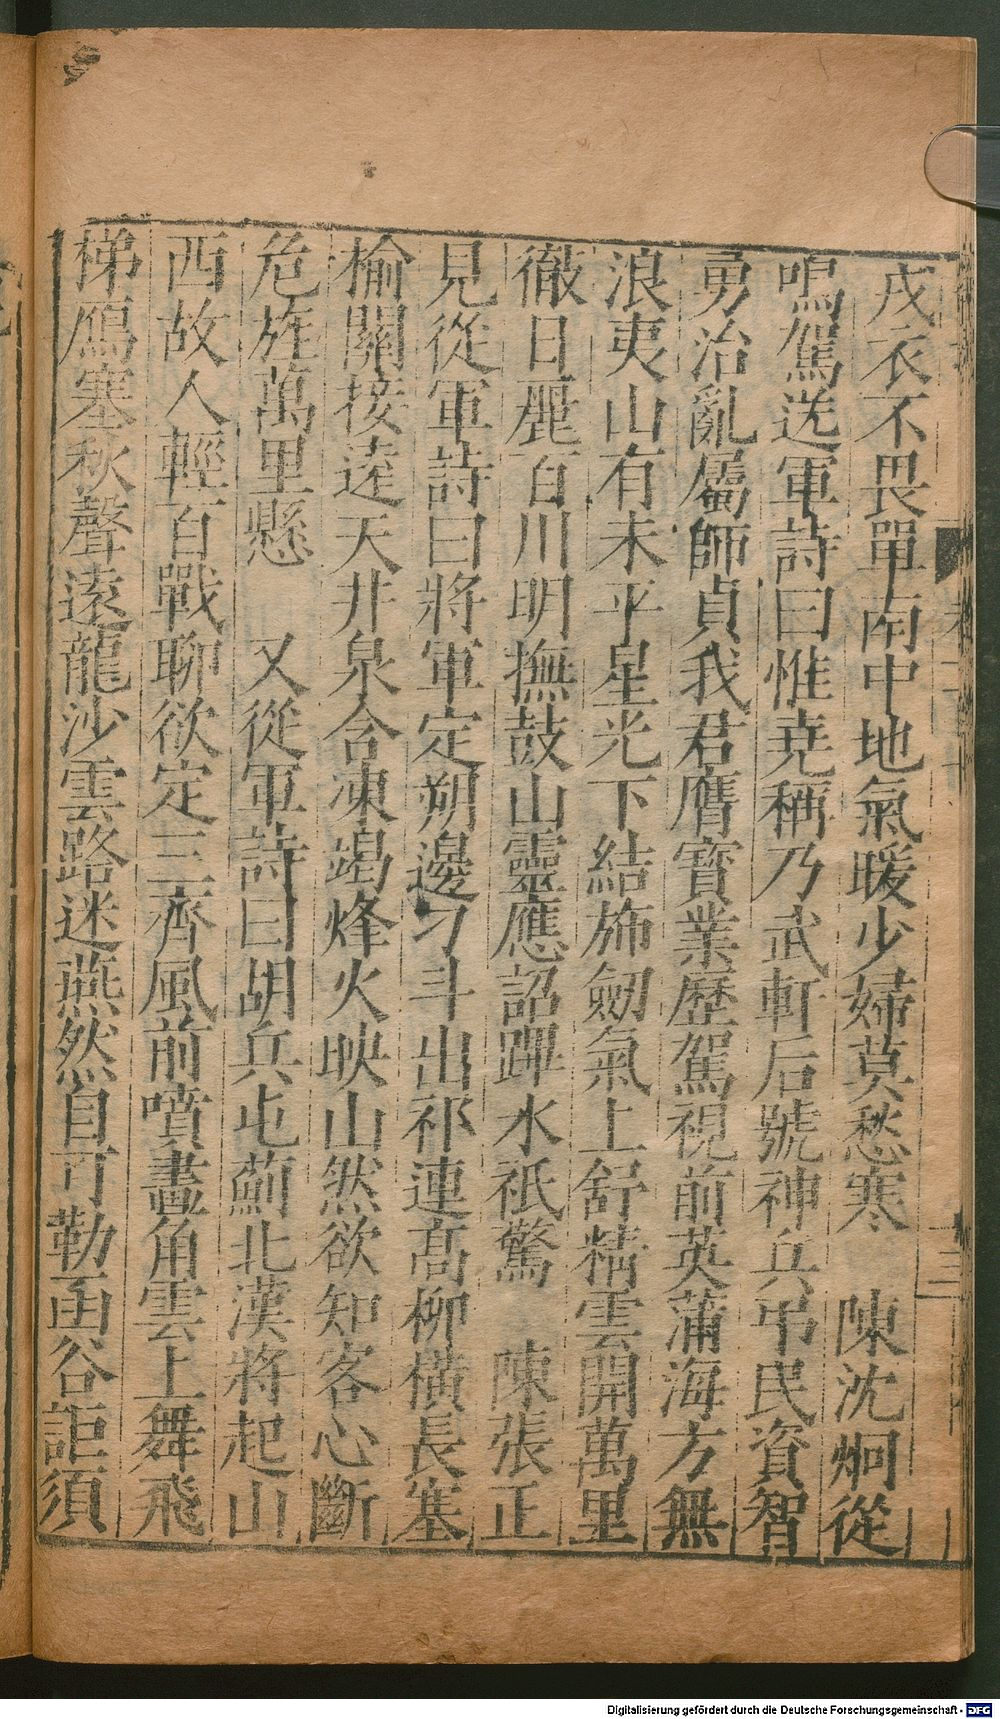 戎衣不畏單南中地氣暖少婦莫愁寒　陳沈炯從
鳴駕送軍詩曰惟堯稱乃武軒后號神兵弔民資智
勇治亂屬師貞我君膺寶業歷駕視前英蒲海方無
浪夷山有未平星光下結斾劒氣上舒精雲開萬里
徹日麗百川明撫鼓山靈應詔蹕水祇驚　陳張正
見從軍詩曰將軍定朔邊刁斗出祁連高柳橫長塞
榆關接遠天井泉含凍竭烽火映山然欲知客心斷
危旌萬里懸　又從軍詩曰胡兵屯薊北漢將起山
西故人輕百戰聊欲定三齊風前噴畫角雲上舞飛
梯鴈塞秋聲遠龍沙雲路迷燕然自可勒函谷詎須
三
Digitalisierung gefördert durch die Deutsche Forschungsgemeinschaft - DFG